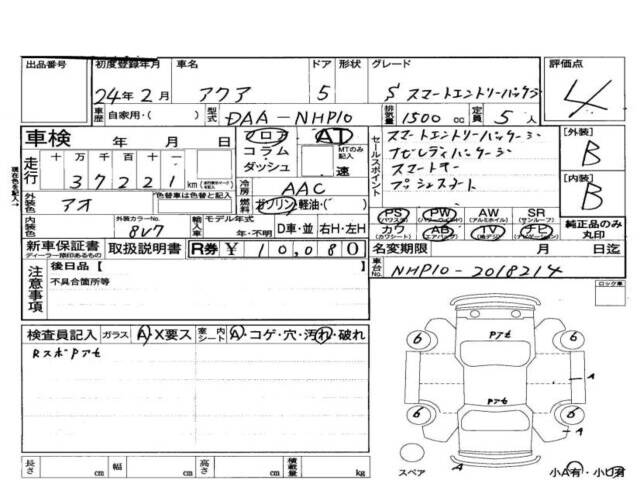 出品番号 初度登録年月 車名 ドア 形状 グレード 評価点
24年2月 アクア 5 S スマートエントリーパッケージ 4
車歴 自家用・( ) 型式 DAA-NHP10 排気量 1500cc 定員 5人
車検 年 月 日 フロア AT セールスポイント スマートエントリーパッケージ [外装] B
コラム MTのみ記入 ナビレディパッケージ
走行 十万千百十一 ダッシュ 速 スマートキー
37221 km 冷房 AAC プッシュスタート [内装] B
外装色 アオ 色替車は色替えと記入 燃料 ガソリン 軽油・( )
PS PW AW SR
(パワステ) (パワーウインド) (アルミホイル) (サンルーフ)
内装色 外装カラーNo. 8V7 輸入車 モデル年式 年・不明 D車・並 右H・左H カワ AB TV ナビ 純正品のみ丸印
(カワシート) (エアバック) (地デジ) (ナビゲーション)
新車保証書 取扱説明書 R券 ¥10,080 名変期限 月 日迄
ディーラー捺印あるもの
車台No. NHP10-2018214
注意事項 後日品【 】
不具合箇所等
ロック車
検査員記入 ガラス A・X要ス 室内シート A・コゲ・穴・汚れ・破れ
RスポPアセ
Pアセ
6 6
A
Pアセ
6 6
A
A
長さ cm 幅 cm 高さ cm 積載量 kg スペア 小A有・小U有
現在色を記入→